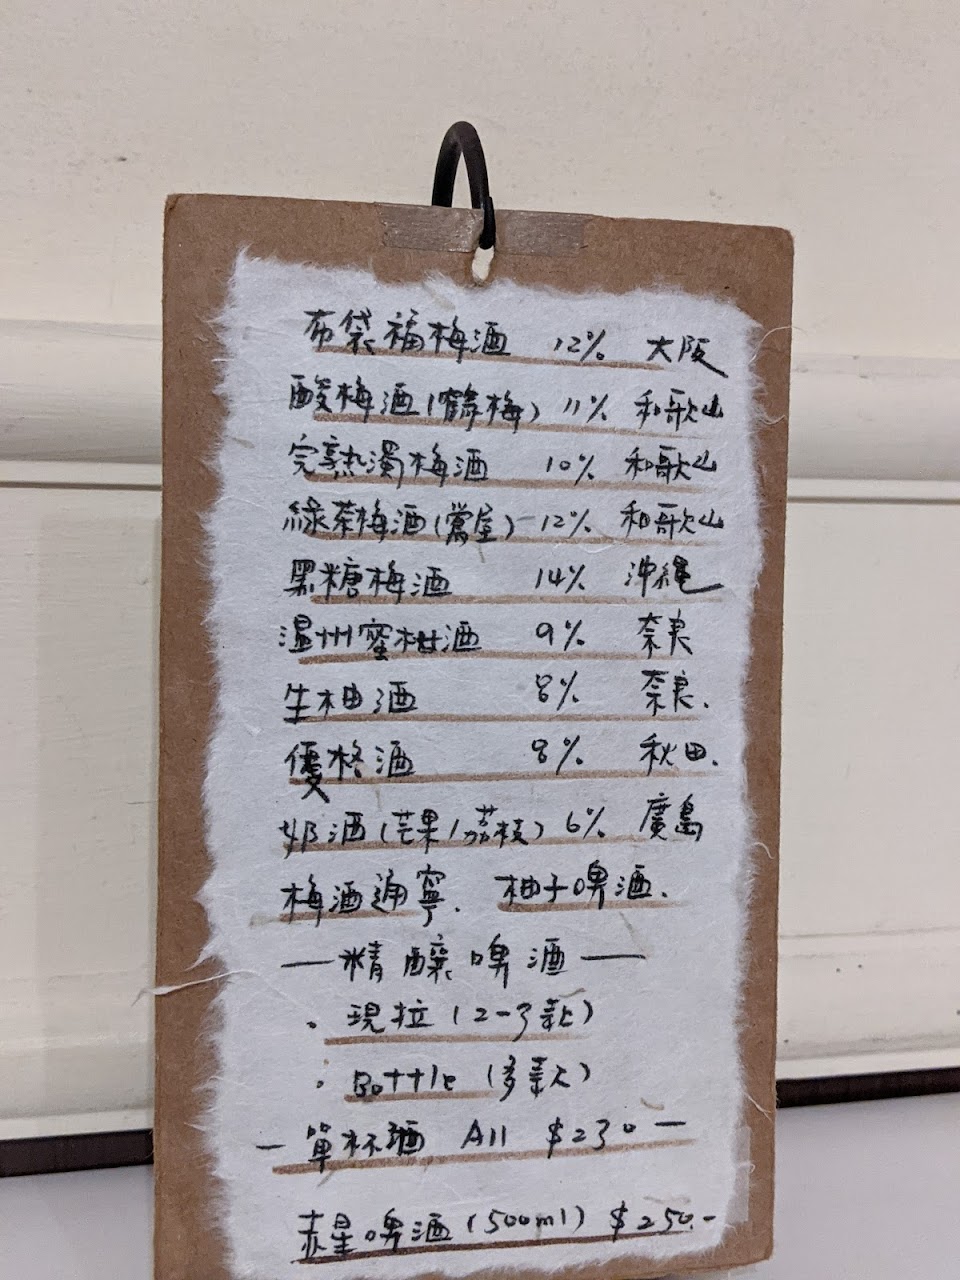 布袋福梅酒 12% 大阪
酸梅酒(鶴梅) 11% 和歌山
完熟濁梅酒 10% 和歌山
綠茶梅酒(鶯屋) 12% 和歌山
黑糖梅酒 14% 沖繩
温州蜜柑酒 9% 奈良
生柚酒 8% 奈良.
優格酒 8% 秋田.
奶酒(芒果/荔枝) 6% 廣島
梅酒通寧. 柚子啤酒.
—精釀啤酒—
. 現拉(2-3款)
. Bottle (多款)
- 單杯酒 All $230 -
赤星啤酒(500ml) $250.-